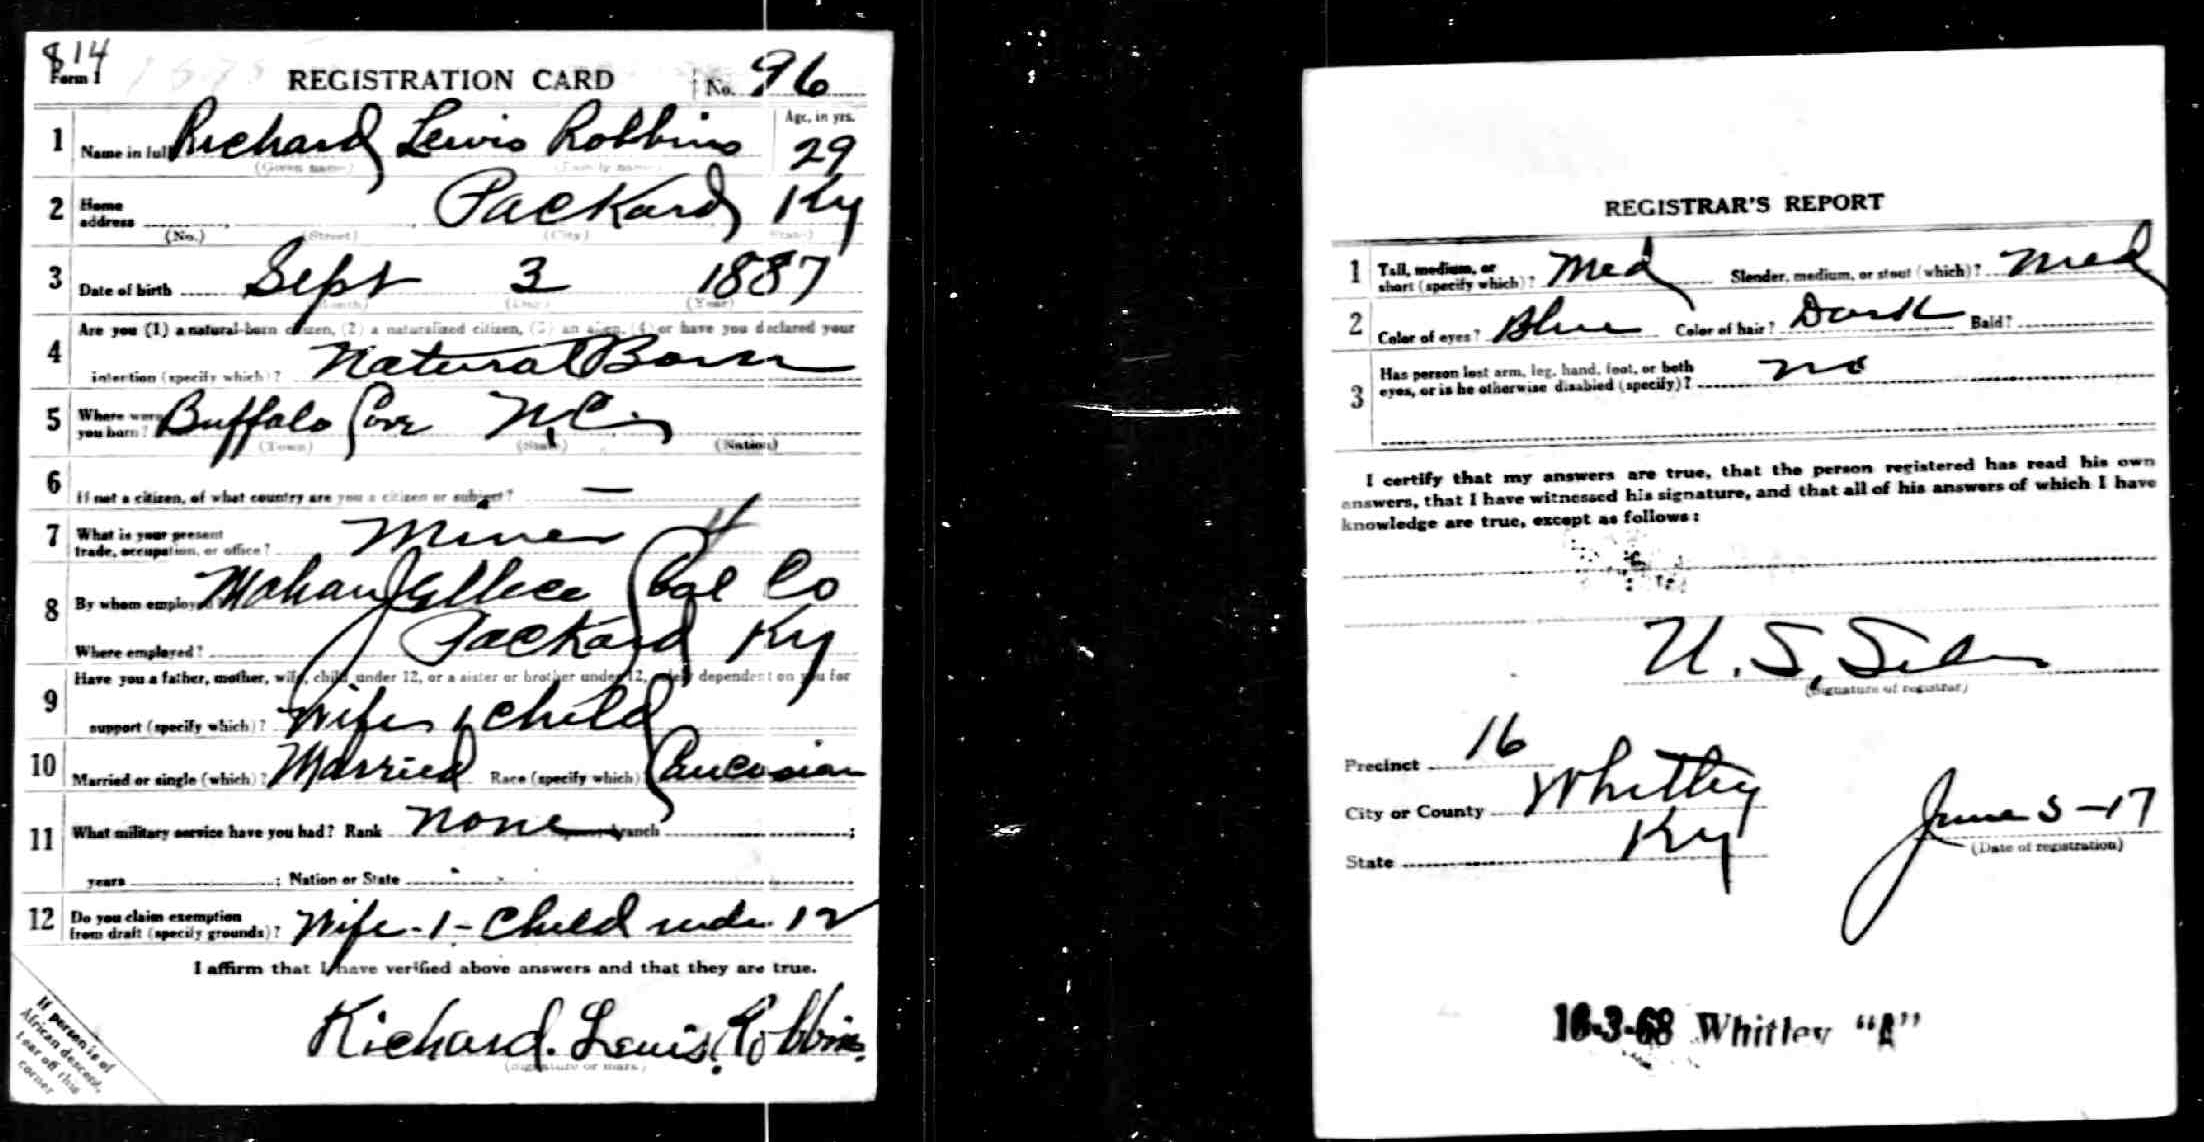 814
Form 1
REGISTRATION CARD No. 96
1 Name in full Richard Lewis Robbins Age, in yrs. 29
(Given name) (Family name)
2 Home address Packard Ky
(No.) (Street) (City) (State)
3 Date of birth Sept 3 1887
(Month) (Day) (Year)
4 Are you (1) a natural-born citizen, (2) a naturalized citizen, (3) an alien, (4) or have you declared your
intention (specify which)? Natural Born
5 Where were you born? Buffalo Cove N.C.
(Town) (State) (Nation)
6 If not a citizen, of what country are you a citizen or subject? —
7 What is your present trade, occupation, or office? Miner
8 By whom employed? Mahan Jellico Coal Co
Where employed? Packard Ky
9 Have you a father, mother, wife, child under 12, or a sister or brother under 12, solely dependent on you for
support (specify which)? Wife 1 child
10 Married or single (which)? Married Race (specify which)? Caucasian
11 What military service have you had? Rank none branch ;
years ; Nation or State
12 Do you claim exemption from draft (specify grounds)? Wife - 1 - Child under 12
I affirm that I have verified above answers and that they are true.
Richard. Lewis. Robbins.
(Signature or mark)
If person is of
African descent,
tear off this
corner
REGISTRAR'S REPORT
1 Tall, medium, or short (specify which)? Med Slender, medium, or stout (which)? Med
2 Color of eyes? Blue Color of hair? Dark Bald?
3 Has person lost arm, leg, hand, foot, or both
eyes, or is he otherwise disabled (specify)? no
I certify that my answers are true, that the person registered has read his own
answers, that I have witnessed his signature, and that all of his answers of which I have
knowledge are true, except as follows:
U. S.
(Signature of registrar)
Precinct 16
City or County Whitley
State Ky
June 5-17
(Date of registration)
16-3-68 Whitley "A"